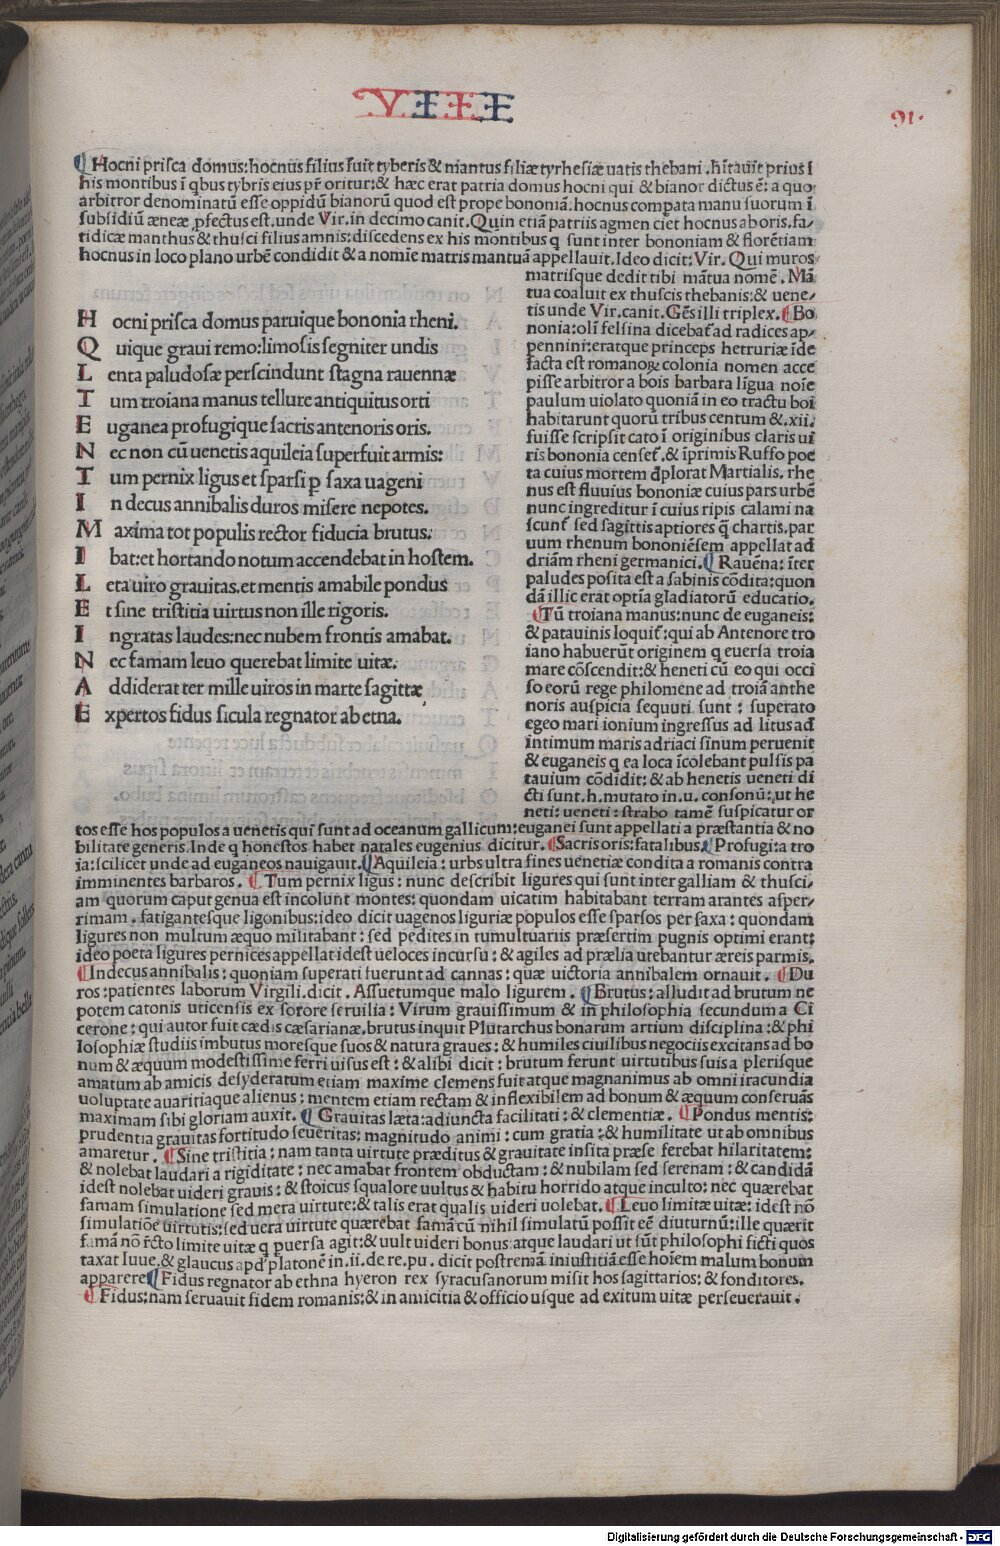 VIII
91.
Hocni prisca domus: hocnus filius fuit tyberis & mantus filiæ tyrhesiæ uatis thebani. hītauit prius ī
his montibus ī q̄bus tybris eius pr̄ oritur: & hæc erat patria domus hocni qui & bianor dictus ē: a quo
arbitror denominatū esse oppidū bianorū quod est prope bononiā: hocnus compata manu suorum ī
subsidiū æneæ ꝓfectus est. unde Vir. in decimo canit. Quin etiā patriis agmen ciet hocnus ab oris. fa/
tidicæ manthus & thusci filius amnis: discedens ex his montibus q sunt inter bononiam & florētiam
hocnus in loco plano urbē condidit & a nomīe matris mantuā appellauit. Ideo dicit: Vir. Qui muros
matrisque dedit tibi mātua nomē. Mā
tua coaluit ex thuscis thebanis: & uene/
tis unde Vir. canit. Gēs illi triplex. Bo
nonia: olī felsina dicebat᷑ ad radices ap/
pennini: eratque princeps hetruriæ īde
facta est romanoꝝ colonia nomen acce
pisse arbitror a bois barbara līgua noīe
paulum uiolato quoniā in eo tractu boi
habitarunt quorū tribus centum & .xii.
fuisse scripsit cato ī originibus claris ui
ris bononia censet᷑. & īprimis Ruffo poe
ta cuius mortem đplorat Martialis. rhe
nus est fluuius bononiæ cuius pars urbē
nunc ingreditur ī cuius ripis calami na
scunt᷑ sed sagittis aptiores q̄ chartis. par
uum rhenum bononiēsem appellat ad
driām rheni germanici. Rauēna: īter
paludes posita est a sabinis cōdita: quon
dā illic erat optīa gladiatorū educatio.
Tū troiana manus: nunc de euganeis:
& patauinis loquit᷑: qui ab Antenore tro
iano habuerūt originem q euersa troia
mare cōscendit: & heneti cū eo qui occi
so eorū rege philomene ad troiā anthe
noris auspicia sequuti sunt: superato
egeo mari ionium ingressus ad litus ad
intimum maris adriaci sinum peruenit
& euganeis q ea loca īcolebant pulsis pa
tauium cōdidit: & ab henetis ueneti di
cti sunt. h. mutato in. u. consonū: ut he
neti: ueneti: strabo tamē suspicatur or
Hocni prisca domus paruique bononia rheni.
Quique graui remo: limosis segniter undis
Lenta paludosæ perscindunt stagna rauennæ
Tum troiana manus tellure antiquitus orti
Euganea profugique sacris antenoris oris.
Nec non cū uenetis aquileia superfuit armis:
Tum pernix ligus et sparsi p saxa uageni
In decus annibalis duros misere nepotes.
Maxima tot populis rector fiducia brutus:
Ibat: et hortando notum accendebat in hostem.
Leta uiro grauitas. et mentis amabile pondus
Et sine tristitia uirtus non ille rigoris.
Ingratas laudes: nec nubem frontis amabat.
Nec famam leuo querebat limite uitæ.
Addiderat ter mille uiros in marte sagittæ
Expertos fidus sicula regnator ab etna.
tos esse hos populos a uenetis qui sunt ad oceanum gallicum: euganei sunt appellati a præstantia & no
bilitate generis. Inde q honestos habet natales eugenius dicitur. Sacris oris: fatalibus: Profugi: a tro
ia: scilicet unde ad euganeos nauigauit. Aquileia: urbs ultra fines uenetiæ condita a romanis contra
imminentes barbaros. Tum pernix ligus: nunc describit ligures qui sunt inter galliam & thusci/
am quorum caput genua est incolunt montes: quondam uicatim habitabant terram arantes asper/
rimam. fatigantesque ligonibus: ideo dicit uagenos liguriæ populos esse sparsos per saxa: quondam
ligures non multum æquo militabant: sed pedites in tumultuariis præsertim pugnis optimi erant:
ideo poeta ligures pernices appellat idest ueloces incursu: & agiles ad prælia utebantur æreis parmis.
In decus annibalis: quoniam superati fuerunt ad cannas: quæ uictoria annibalem ornauit. Du
ros: patientes laborum Virgili. dicit. Assuetumque malo ligurem. Brutus: alludit ad brutum ne
potem catonis uticensis ex sorore seruilia: Virum grauissimum & in philosophia secundum a Ci
cerone: qui autor fuit cædis cæsarianæ. brutus inquit Plutarchus bonarum artium disciplina: & phi
losophiæ studiis imbutus moresque suos & natura graues: & humiles ciuilibus negociis excitans ad bo
num & æquum modestissime ferri uisus est: & alibi dicit: brutum ferunt uirtutibus suis a plerisque
amatum ab amicis desyderatum etiam maxime clemens fuit atque magnanimus ab omni iracundia
uoluptate auaritiaque alienus: mentem etiam rectam & inflexibilem ad bonum & æquum conseruās
maximam sibi gloriam auxit. Grauitas læta: adiuncta facilitati: & clementiæ. Pondus mentis:
prudentia grauitas fortitudo seueritas: magnitudo animi: cum gratia: & humilitate ut ab omnibus
amaretur. Sine tristitia: nam tanta uirtute præditus & grauitate insita præse ferebat hilaritatem:
& nolebat laudari a rigiditate: nec amabat frontem obductam: & nubilam sed serenam: & candidā
idest nolebat uideri grauis: & stoicus squalore uultus & habitu horrido atque inculto: nec quærebat
famam simulatione sed mera uirtute: & talis erat qualis uideri uolebat. Leuo limitæ uitæ: idest nō
simulatiōe uirtutis: sed uera uirtute quærebat famā cū nihil simulatū possit eē diuturnū: ille quærit
famā nō r̄cto limite uitæ q puersa agit: & uult uideri bonus atque laudari ut sūt philosophi ficti quos
taxat Iuue. & glaucus apd̓ platonē in. ii. de re. pu. dicit postremā iniustitiā esse hoīem malum bonum
apparere Fidus regnator ab ethna hyeron rex syracusanorum misit hos sagittarios: & fonditores.
Fidus: nam seruauit fidem romanis: & in amicitia & officio usque ad exitum uitæ perseuerauit.
Digitalisierung gefördert durch die Deutsche Forschungsgemeinschaft - DFG